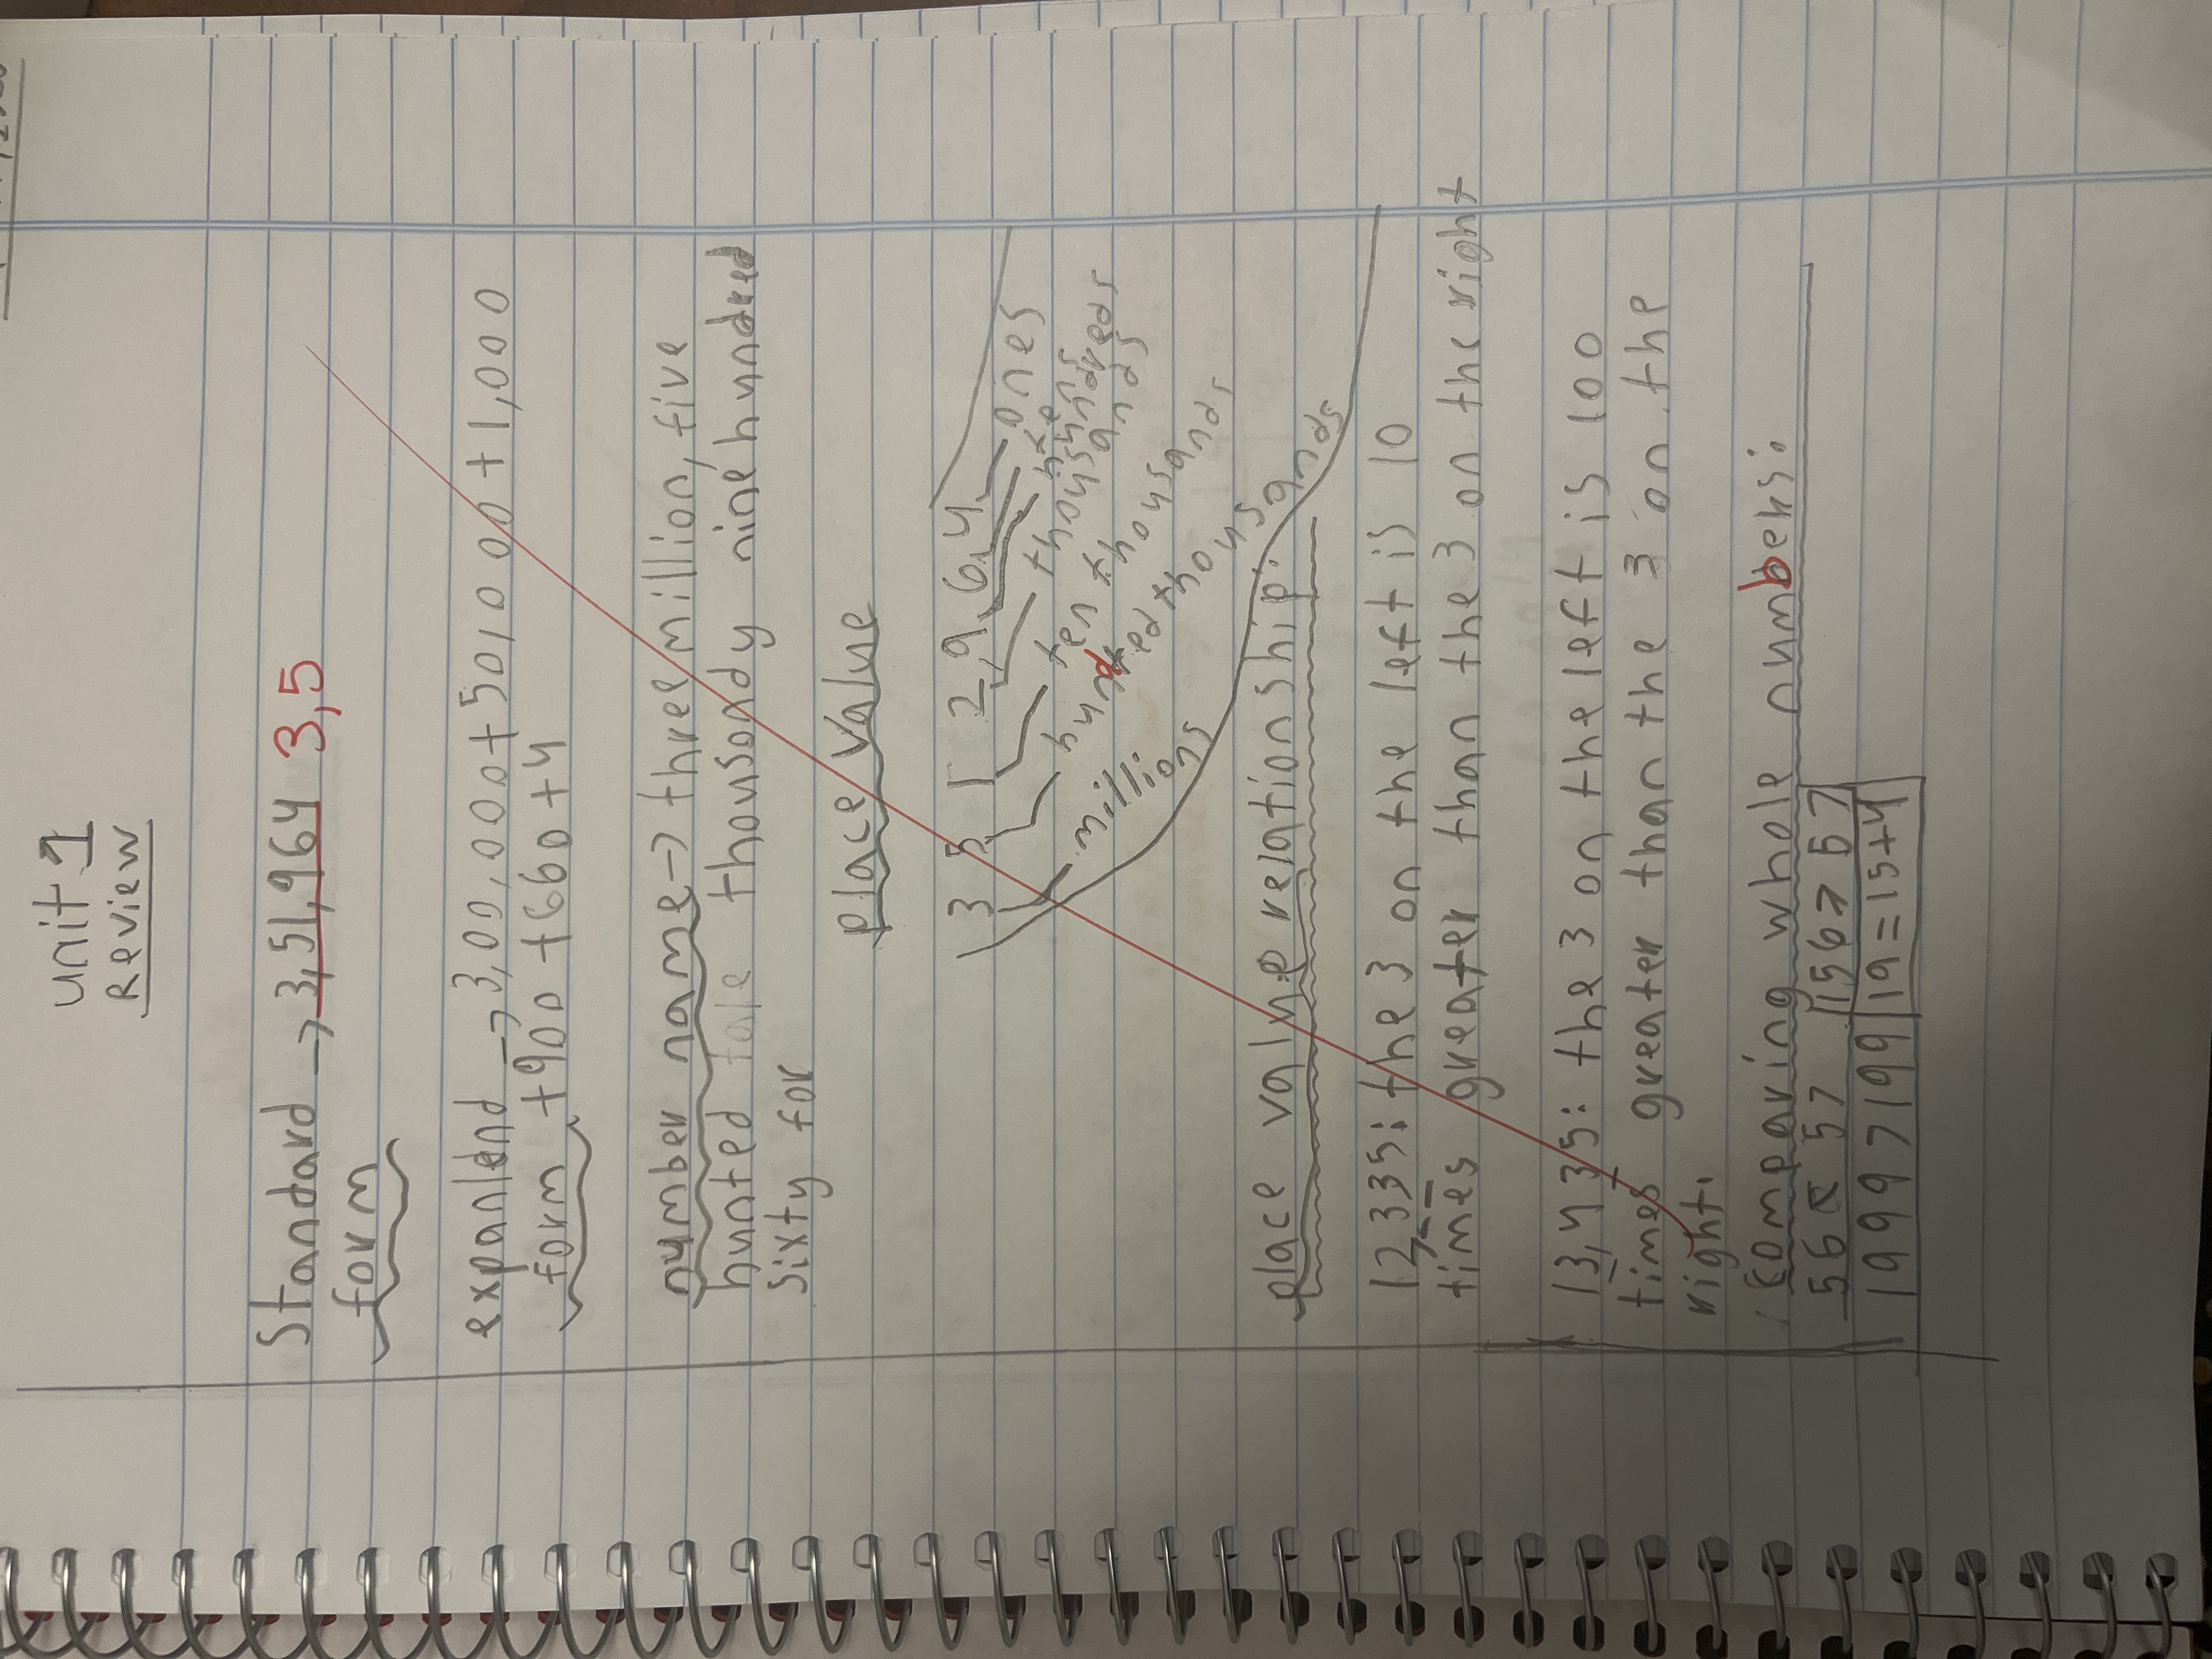 Unit 1
Review
Standard → 3,51,964 3,5
form
expanlend → 3,00,000+50,000+1,000
form +900 +660 +4
number name → three million, five
hunted tale thousondy nine hundred
Sixty for
place value
3 5 1 2 9 6 4
ones
ten
hundreds
thousands
ten thousands
hundred thousands
millions
place value relationship:
12,335: the 3 on the left is 10
times greater than the 3 on the right
13,435: the 3 on the left is 100
times greater than the 3 on the
right.
Comparing whole numbers:
56 < 57 156 > 57
199971991 19=15+4